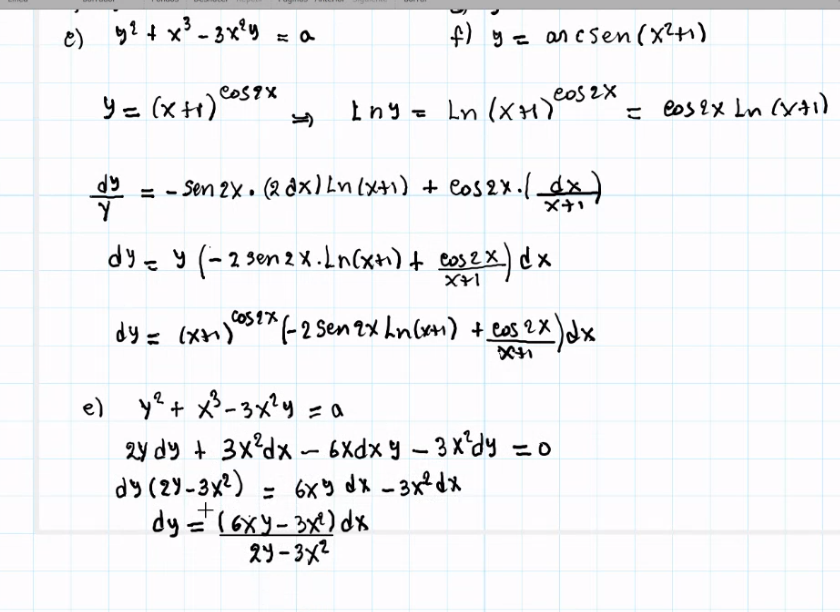 e) y² + x³ - 3x²y = a f) y = arcsen(x²+1)
y = (x+1)^cos2x ⇒ Lny = Ln(x+1)^cos2x = cos2x Ln(x+1)
dy/y = -sen2x·(2dx)Ln(x+1) + cos2x·(dx/x+1)
dy = y(-2sen2x·Ln(x+1) + cos2x/x+1)dx
dy = (x+1)^cos2x(-2sen2x Ln(x+1) + cos2x/x+1)dx
e) y² + x³ - 3x²y = a
2ydy + 3x²dx - 6xdxy - 3x²dy = 0
dy(2y-3x²) = 6xy dx - 3x²dx
dy = (6xy - 3x²)dx/2y-3x²